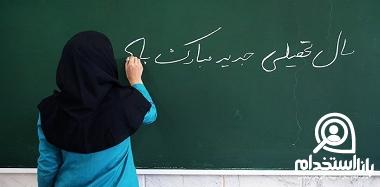 سال تحصیلی جدید مبارک با
بازار استخدام